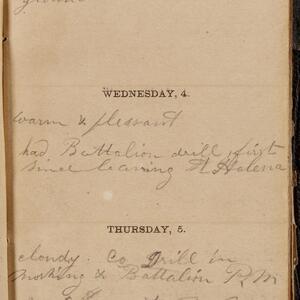 ground
WEDNESDAY, 4.
warm & plesant
had Battalion drill, first
since leaving St Helena
THURSDAY, 5.
cloudy. Co Drill in
morning & Battalion P.M